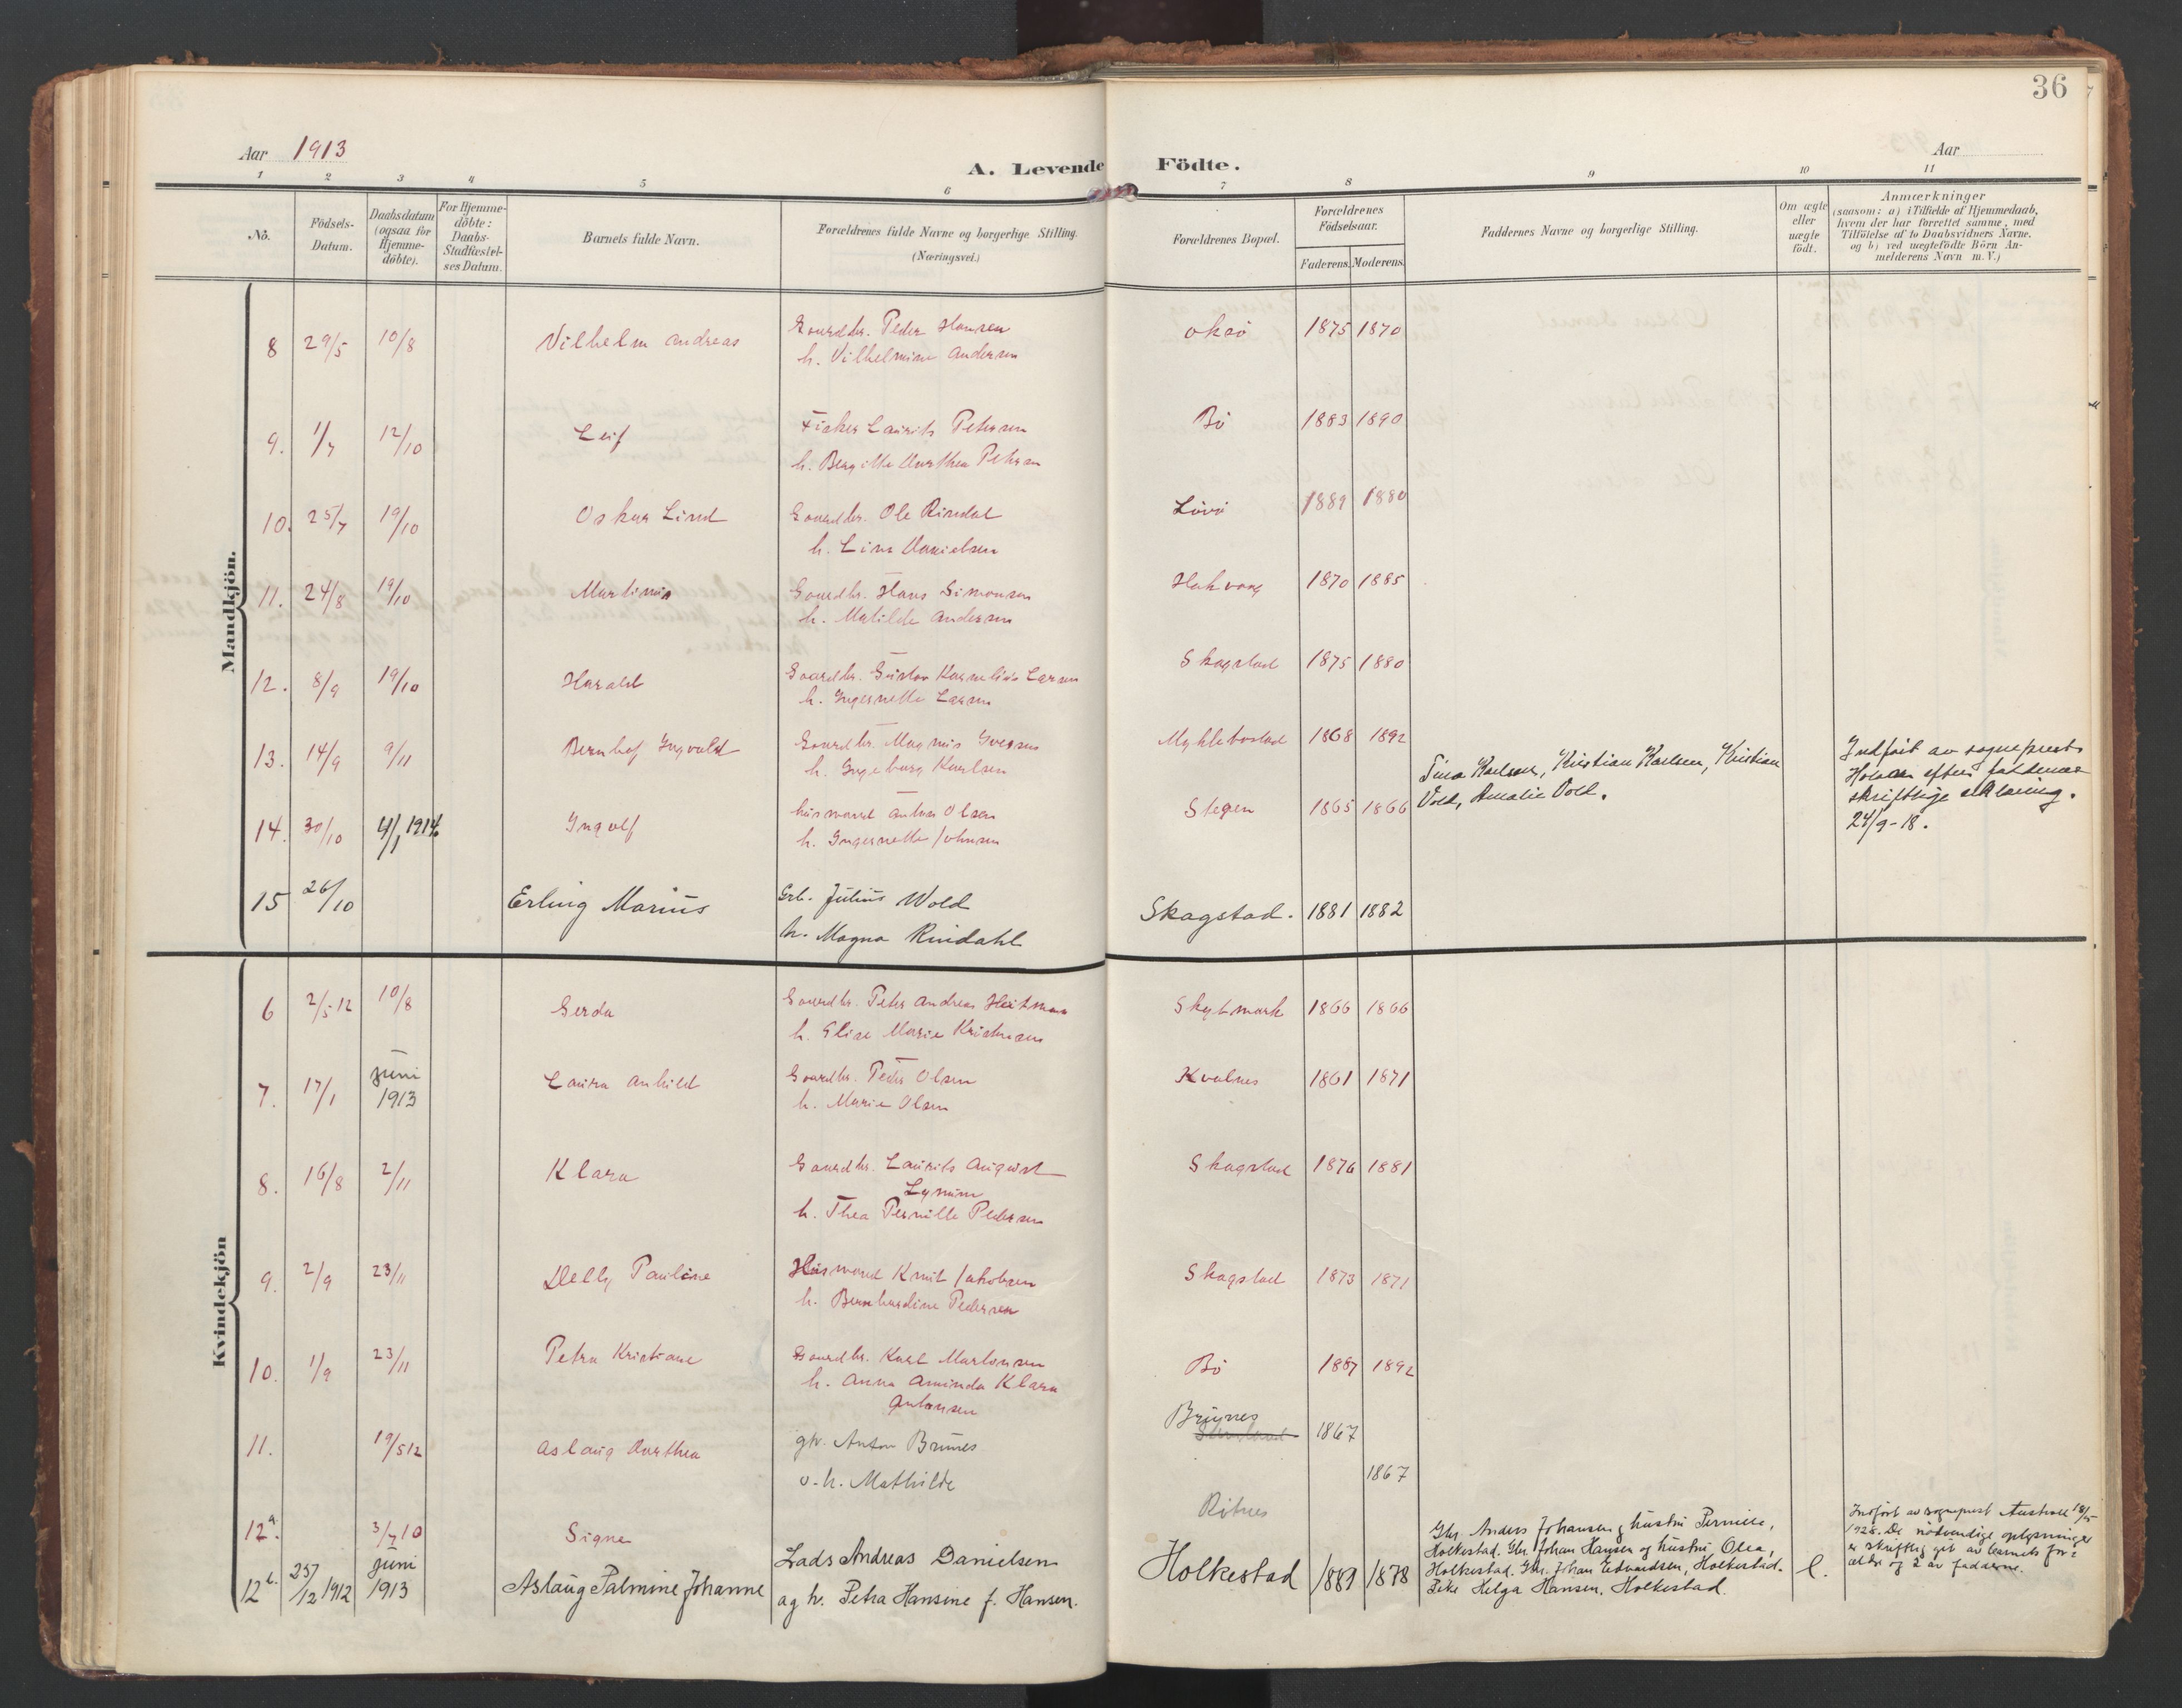 36
Aar 1913
Aar
A. Levende Födte.
1 2 3 4 5 6 7 8 9 10 11
No.
Födsels-Datum.
Daabsdatum (ogsaa for Hjemme-döbte).
For Hjemme-döbte: Daabs-Stadfæstel-ses Datum.
Barnets fulde Navn.
Forældrenes fulde Navne og borgerlige Stilling. (Næringsvei.)
Forældrenes Bopæl.
Forældrenes Födselsaar.
Faderens. Moderens.
Faddernes Navne og borgerlige Stilling.
Om ægte eller uægte födt.
Anmærkninger
(saasom: a) i Tilfælde af Hjemmedaab,
hvem der har forrettet samme, med
Tilföielse af to Daabsvidners Navne,
og b) ved uægtefödte Börn An-
melderens Navn m.V.)
Mandkjön.
8 29/5 10/8 Vilhelm Andreas Gaardbr. Peder Hansen Oksö 1875 1870
h. Vilhelmine Andersen
9. 1/7 12/10 Leif Fisker Laurits Petersen Bö 1883 1890
h. Bergitte Dorthea Petersen
10. 25/7 19/10 Oskar Lind Gaardbr. Ole Rindal Lövö 1889 1880
h. Lina Danielsen
11. 24/8 19/10 Martinus Gaardbr. Hans Simonsen Hakvaag 1870 1885
h. Matilde Andersen
12. 8/9 19/10 Harald Gaardbr. Gustav Kornelius Larsen Skagstad 1875 1880
h. Ingernette Larsen
13. 14/9 9/11 Bernhof Ingvald Gaardbr. Magnus Iversen Myklebostad 1868 1892
h. Ingeborg Karlsen
Tina Karlsen, Kristian Karlsen, Kristian
Vold, Amalie Vold.
Indfört av sogneprest
Holm efter faddernes
skriftlige erklæring.
24/9-18.
14. 30/10 4/1 1914 Ingolf husmand Anton Olsen Stegen 1865 1866
h. Ingernette Johnsen
15 26/10 Erling Marius Grb. Julius Wold Skagstad. 1881 1882
h. Magna Rindahl
Kvindekjön
6 2/5 12 10/8 Gerda Gaardbr. Peter Andreas Heitman Skotmark 1866 1866
h. Elise Marie Kristensen
7. 17/1 juni 1913 Laura Anhild Gaardbr. Peder Olsen Kvalnes 1861 1871
h. Marie Olsen
8. 16/8 2/11 Klara Gaardbr. Laurits August Skagstad 1876 1881
Lynum
h. Thea Pernille Pedersen
9. 2/9 23/11 Delly Pauline Husmand Knut Jakobsen Skagstad 1873 1871
h. Bernhardine Pedersen
10. 1/9 23/11 Petra Kristiane Gaardbr. Karl Martonsen Bö 1887 1892
h. Anna Aminda Klara
Antonsen
11. 19/5 12 Aslaug Dorthea gbr. Anton Brunes Brunes 1867
o. h. Mathilde 1867
12a. 3/7 10 Signe Ritnes
12b. 25/12 1912 juni 1913 Aslaug Palmine Johanne Lads Andreas Danielsen Holkestad 1889 1878
og h. Petra Hansine f. Hansen.
Gbr. Anders Johansen og hustru Pernille,
Holkestad. Gbr. Johan Hansen og hustru Olea,
Holkestad. Gbr. Johan Edvardsen, Holkestad.
Pike Helga Hansen, Holkestad.
l.
Indfört av sogneprest Austvoll 18/5
1928. De nödvendige oplysninger
er skriftlig git av barnets for-
ældre og 2 av fadderne.